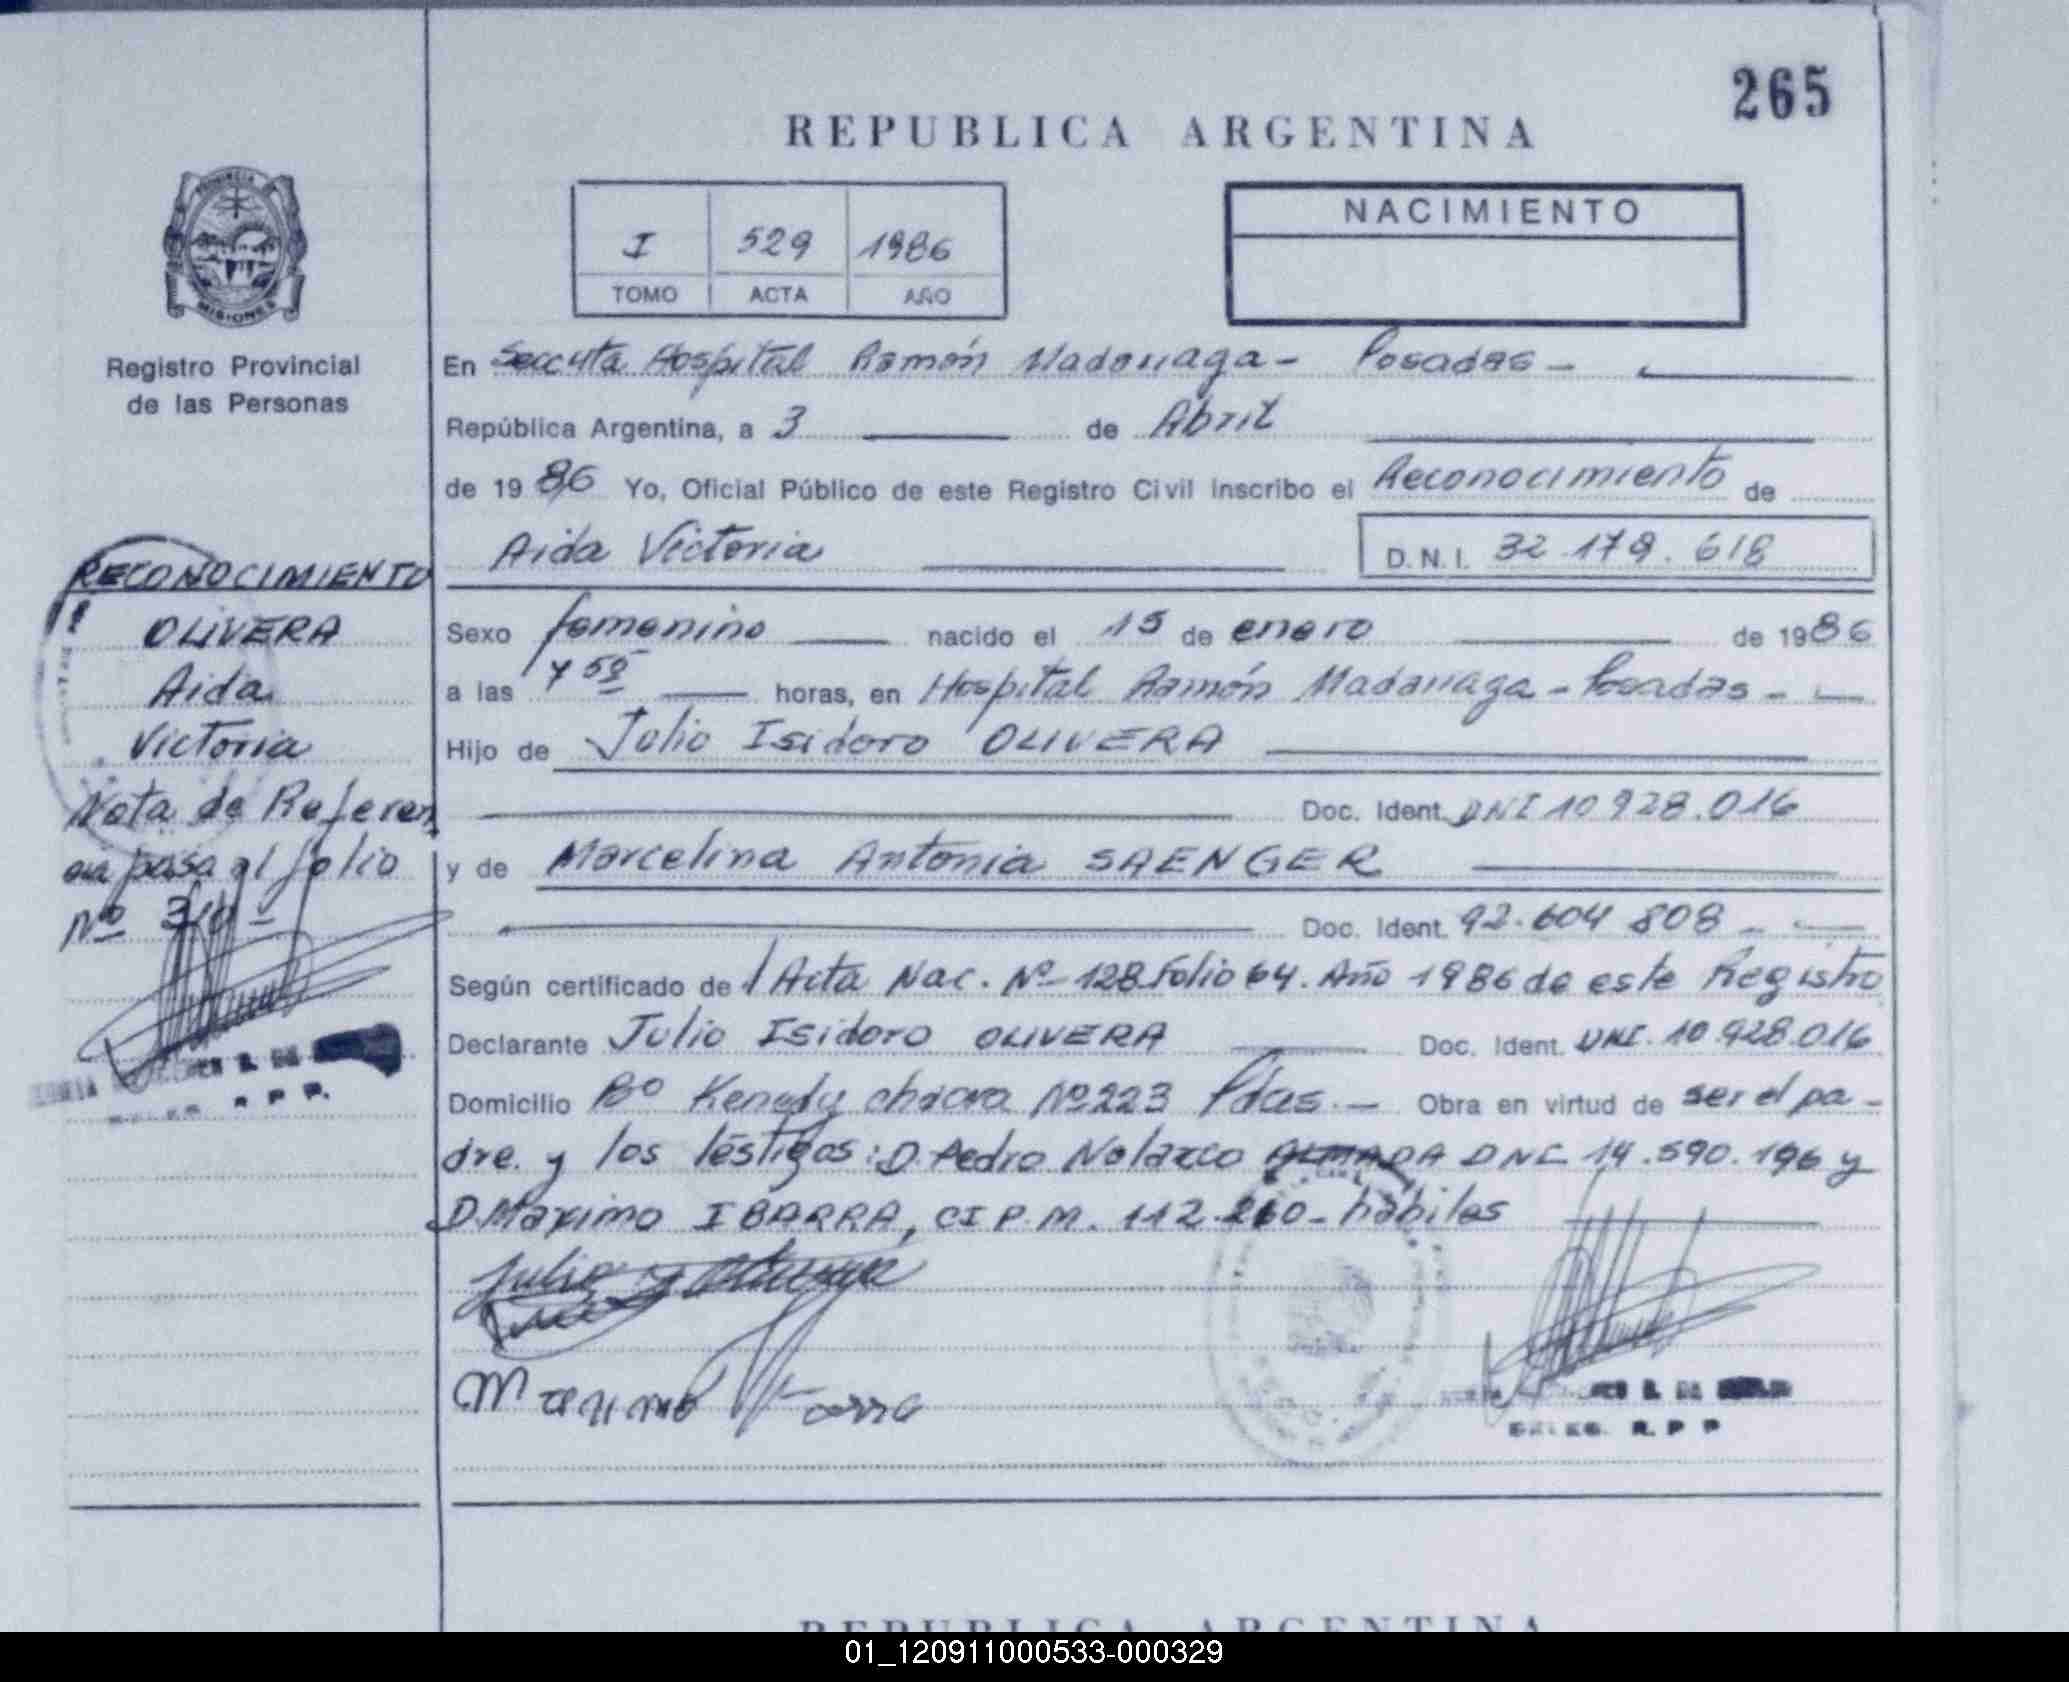 265
REPUBLICA ARGENTINA
I 529 1986
TOMO ACTA AÑO
NACIMIENTO
PROVINCIA DE
MISIONES
Registro Provincial
de las Personas
En Hospital Ramón Madariaga - Posadas -
República Argentina, a 3 de Abril
de 1986 Yo, Oficial Público de este Registro Civil inscribo el Reconocimiento de
Aida Victoria D.N.I. 32.179.618
Sexo femenino nacido el 15 de enero de 1986
a las 7 50 horas, en Hospital Ramón Madariaga - Posadas -
Hijo de Julio Isidoro OLIVERA
Doc. Ident. DNI 10 928.016
y de Marcelina Antonia SAENGER
Doc. Ident. 92.604 808 -
Según certificado de Acta Nac. Nº 128 Folio 64. Año 1986 de este Registro
Declarante Julio Isidoro OLIVERA Doc. Ident. DNI. 10.928.016
Domicilio Bº Kenedy chacra Nº 223 Pdas. - Obra en virtud de ser el pa-
dre. y los testigos: D. Pedro Nolazco ALMADA DNI 14.590.196 y
D. Maximo IBARRA, CI P.M. 112.210 - hábiles
RECONOCIMIENTO
OLIVERA
Aida
Victoria
Nota de Referen
cia pasa al folio
Nº
R. P. P.
R. P. P
REPUBLICA ARGENTINA
01_120911000533-000329